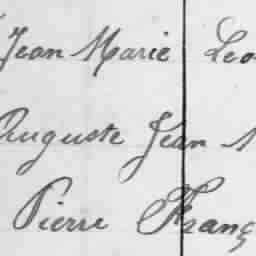 Jean Marie Leo
Auguste Jean
Pierre Franç